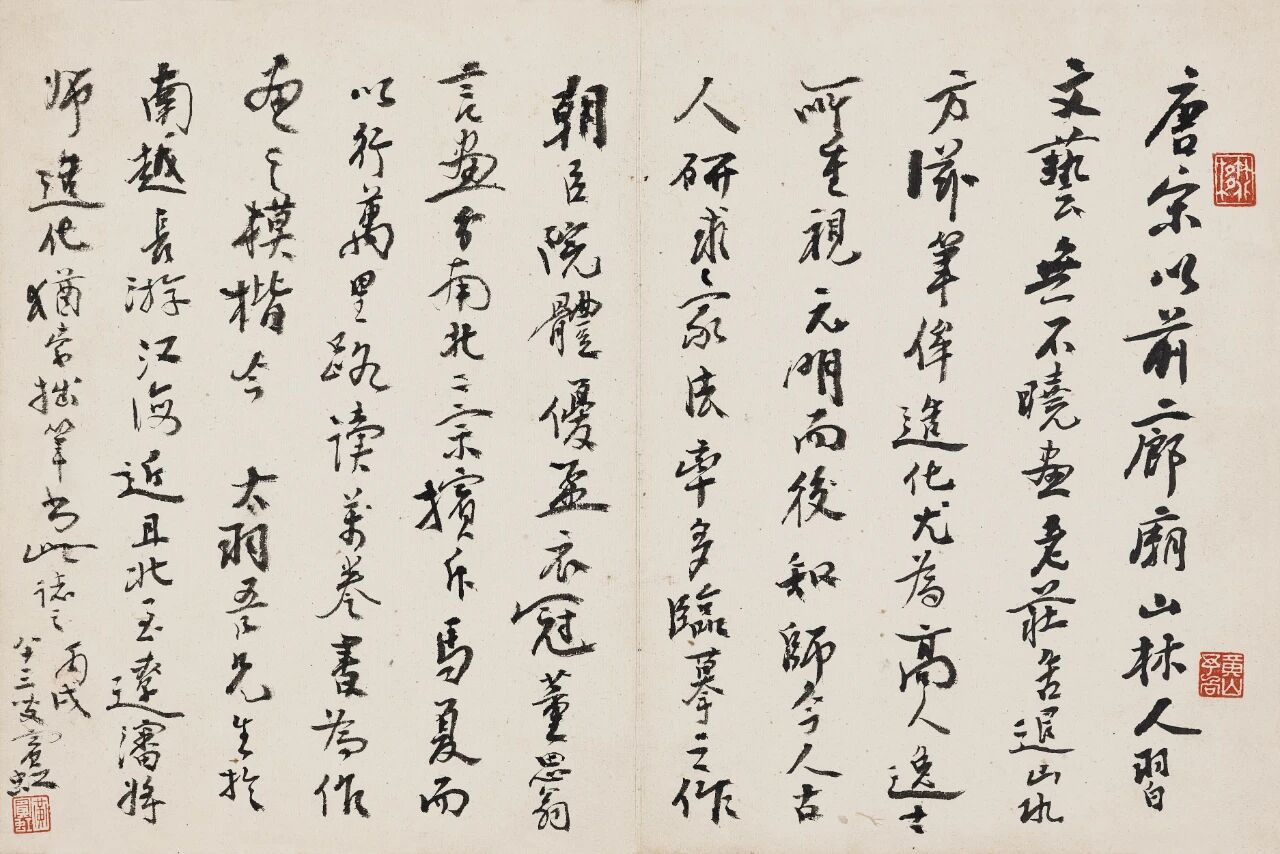 唐宋以前二廊廟山林人習
文藝云無不曉畫老莊告退山水
方滋筆倬進化尤為高人逸士
所重視元明而後和師今人古
人研求之家法率多臨摹之作
朝臣院體優孟衣冠董思翁
言畫分南北二宗擯斥馬夏而
以行萬里路讀萬卷書為作
畫之模楷今 太羽吾兄生於
南越長游江海近且北至遼瀋將
師造化猶索拙筆書此誌之 丙戌
八十三叟賓虹
黃山
黃賓虹